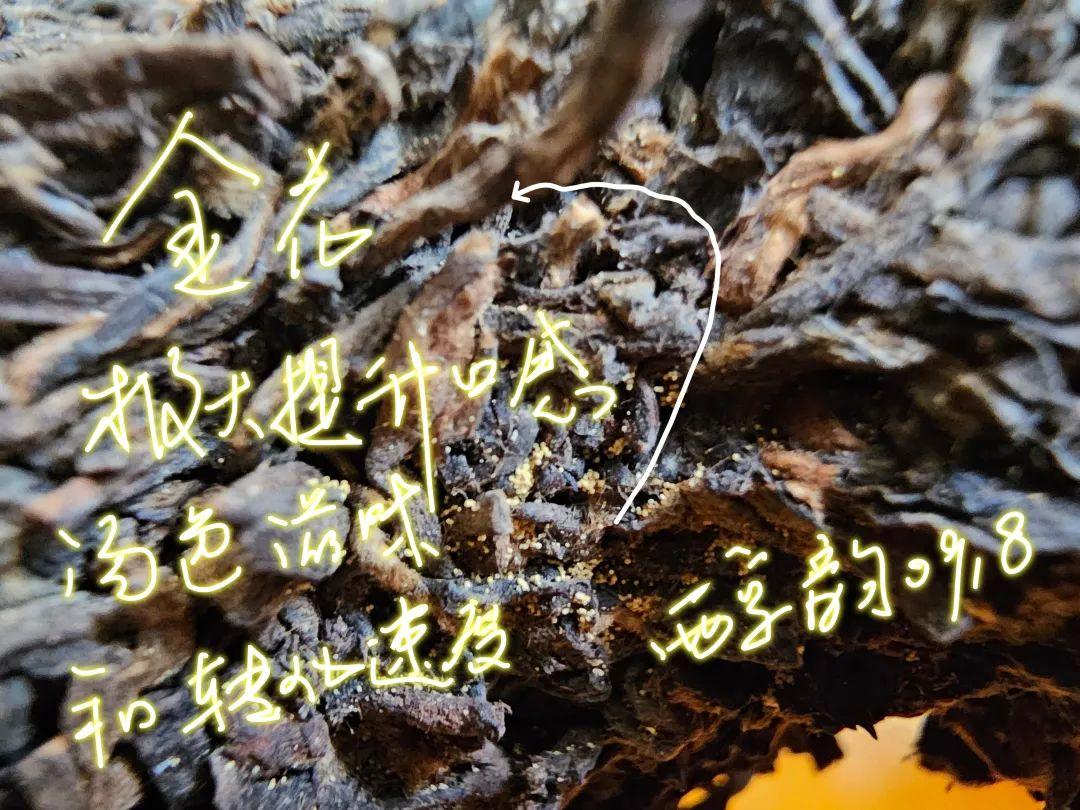 金花
极大提升口感
汤色滋味
和转化速度
醇韵09.8